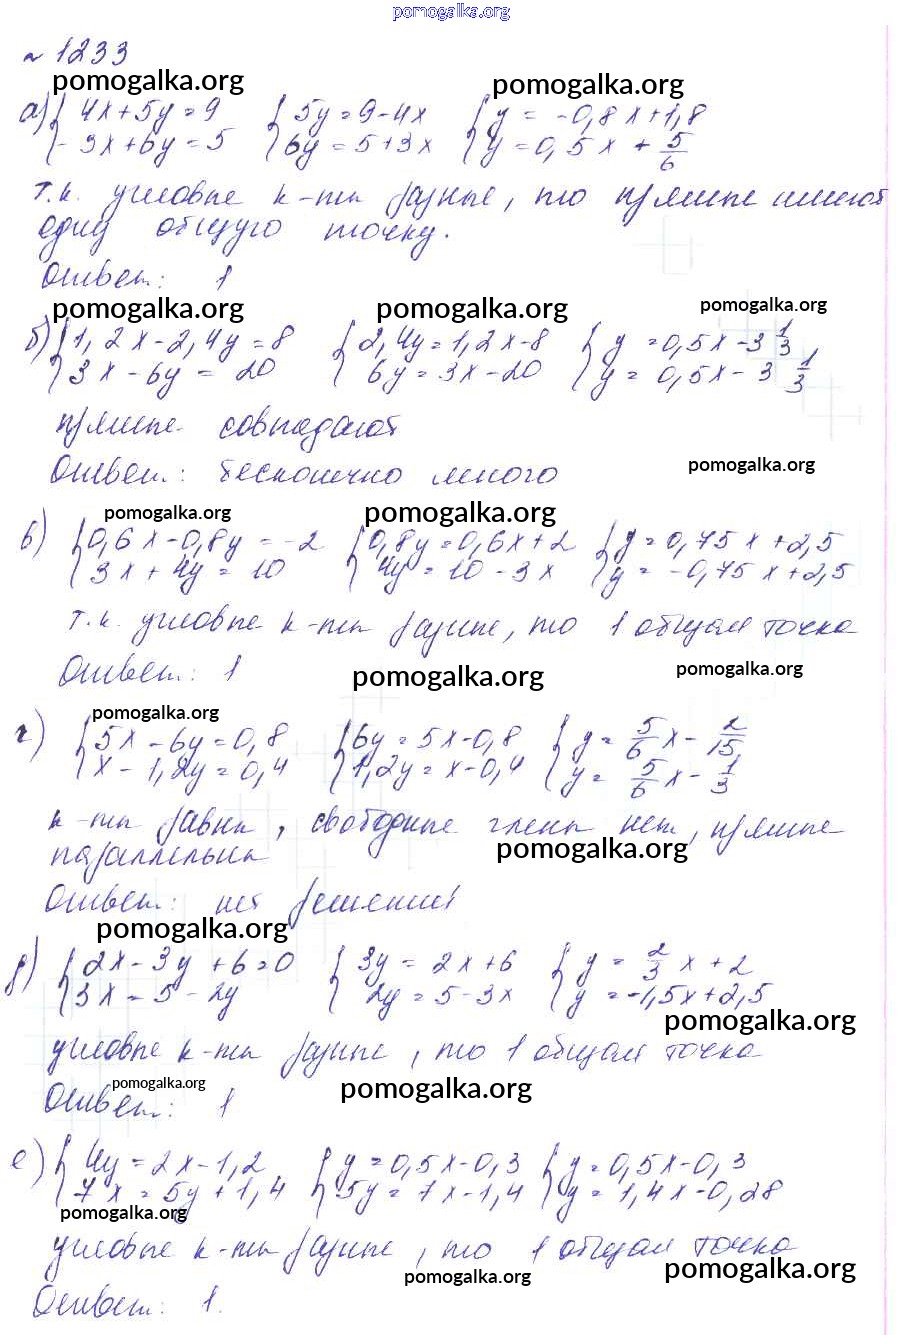 pomogalka.org
№ 1233
pomogalka.org pomogalka.org
а) { 4x+5y=9 { 5y=9-4x { y = -0,8x+1,8
{ -3x+6y=5 { 6y=5+3x { y=0,5x + 5/6
т.к. угловые к-ты разные, то прямые имеют
одну общую точку.
Ответ: 1
pomogalka.org pomogalka.org pomogalka.org
б) { 1,2x-2,4y=8 { 2,4y=1,2x-8 { y =0,5x-3 1/3
{ 3x-6y = 20 { 6y=3x-20 { y= 0,5x-3 1/3
прямые совпадают
Ответ: бесконечно много
pomogalka.org
pomogalka.org pomogalka.org
в) { 0,6x-0,8y=-2 { 0,8y=0,6x+2 { y=0,75x+2,5
{ 3x+4y=10 { 4y=10-3x { y=-0,75x+2,5
т.к. угловые к-ты разные, то 1 общая точка
Ответ: 1
pomogalka.org pomogalka.org
pomogalka.org
г) { 5x-6y=0,8 { 6y=5x-0,8 { y= 5/6 x - 2/15
{ x-1,2y=0,4 { 1,2y=x-0,4 { y= 5/6 x - 1/3
к-ты равны, свободные члены нет, прямые
параллельны
pomogalka.org
Ответ: нет решений
pomogalka.org
д) { 2x-3y+6=0 { 3y=2x+6 { y= 2/3 x+2
{ 3x=5-2y { 2y=5-3x { y=-1,5x+2,5
pomogalka.org
угловые к-ты разные, то 1 общая точка
pomogalka.org pomogalka.org
Ответ: 1
е) { 4y=2x-1,2 { y=0,5x-0,3 { y=0,5x-0,3
{ 7x=5y+1,4 { 5y=7x-1,4 { y=1,4x-0,28
pomogalka.org
угловые к-ты разные, то 1 общая точка
pomogalka.org pomogalka.org
Ответ: 1.